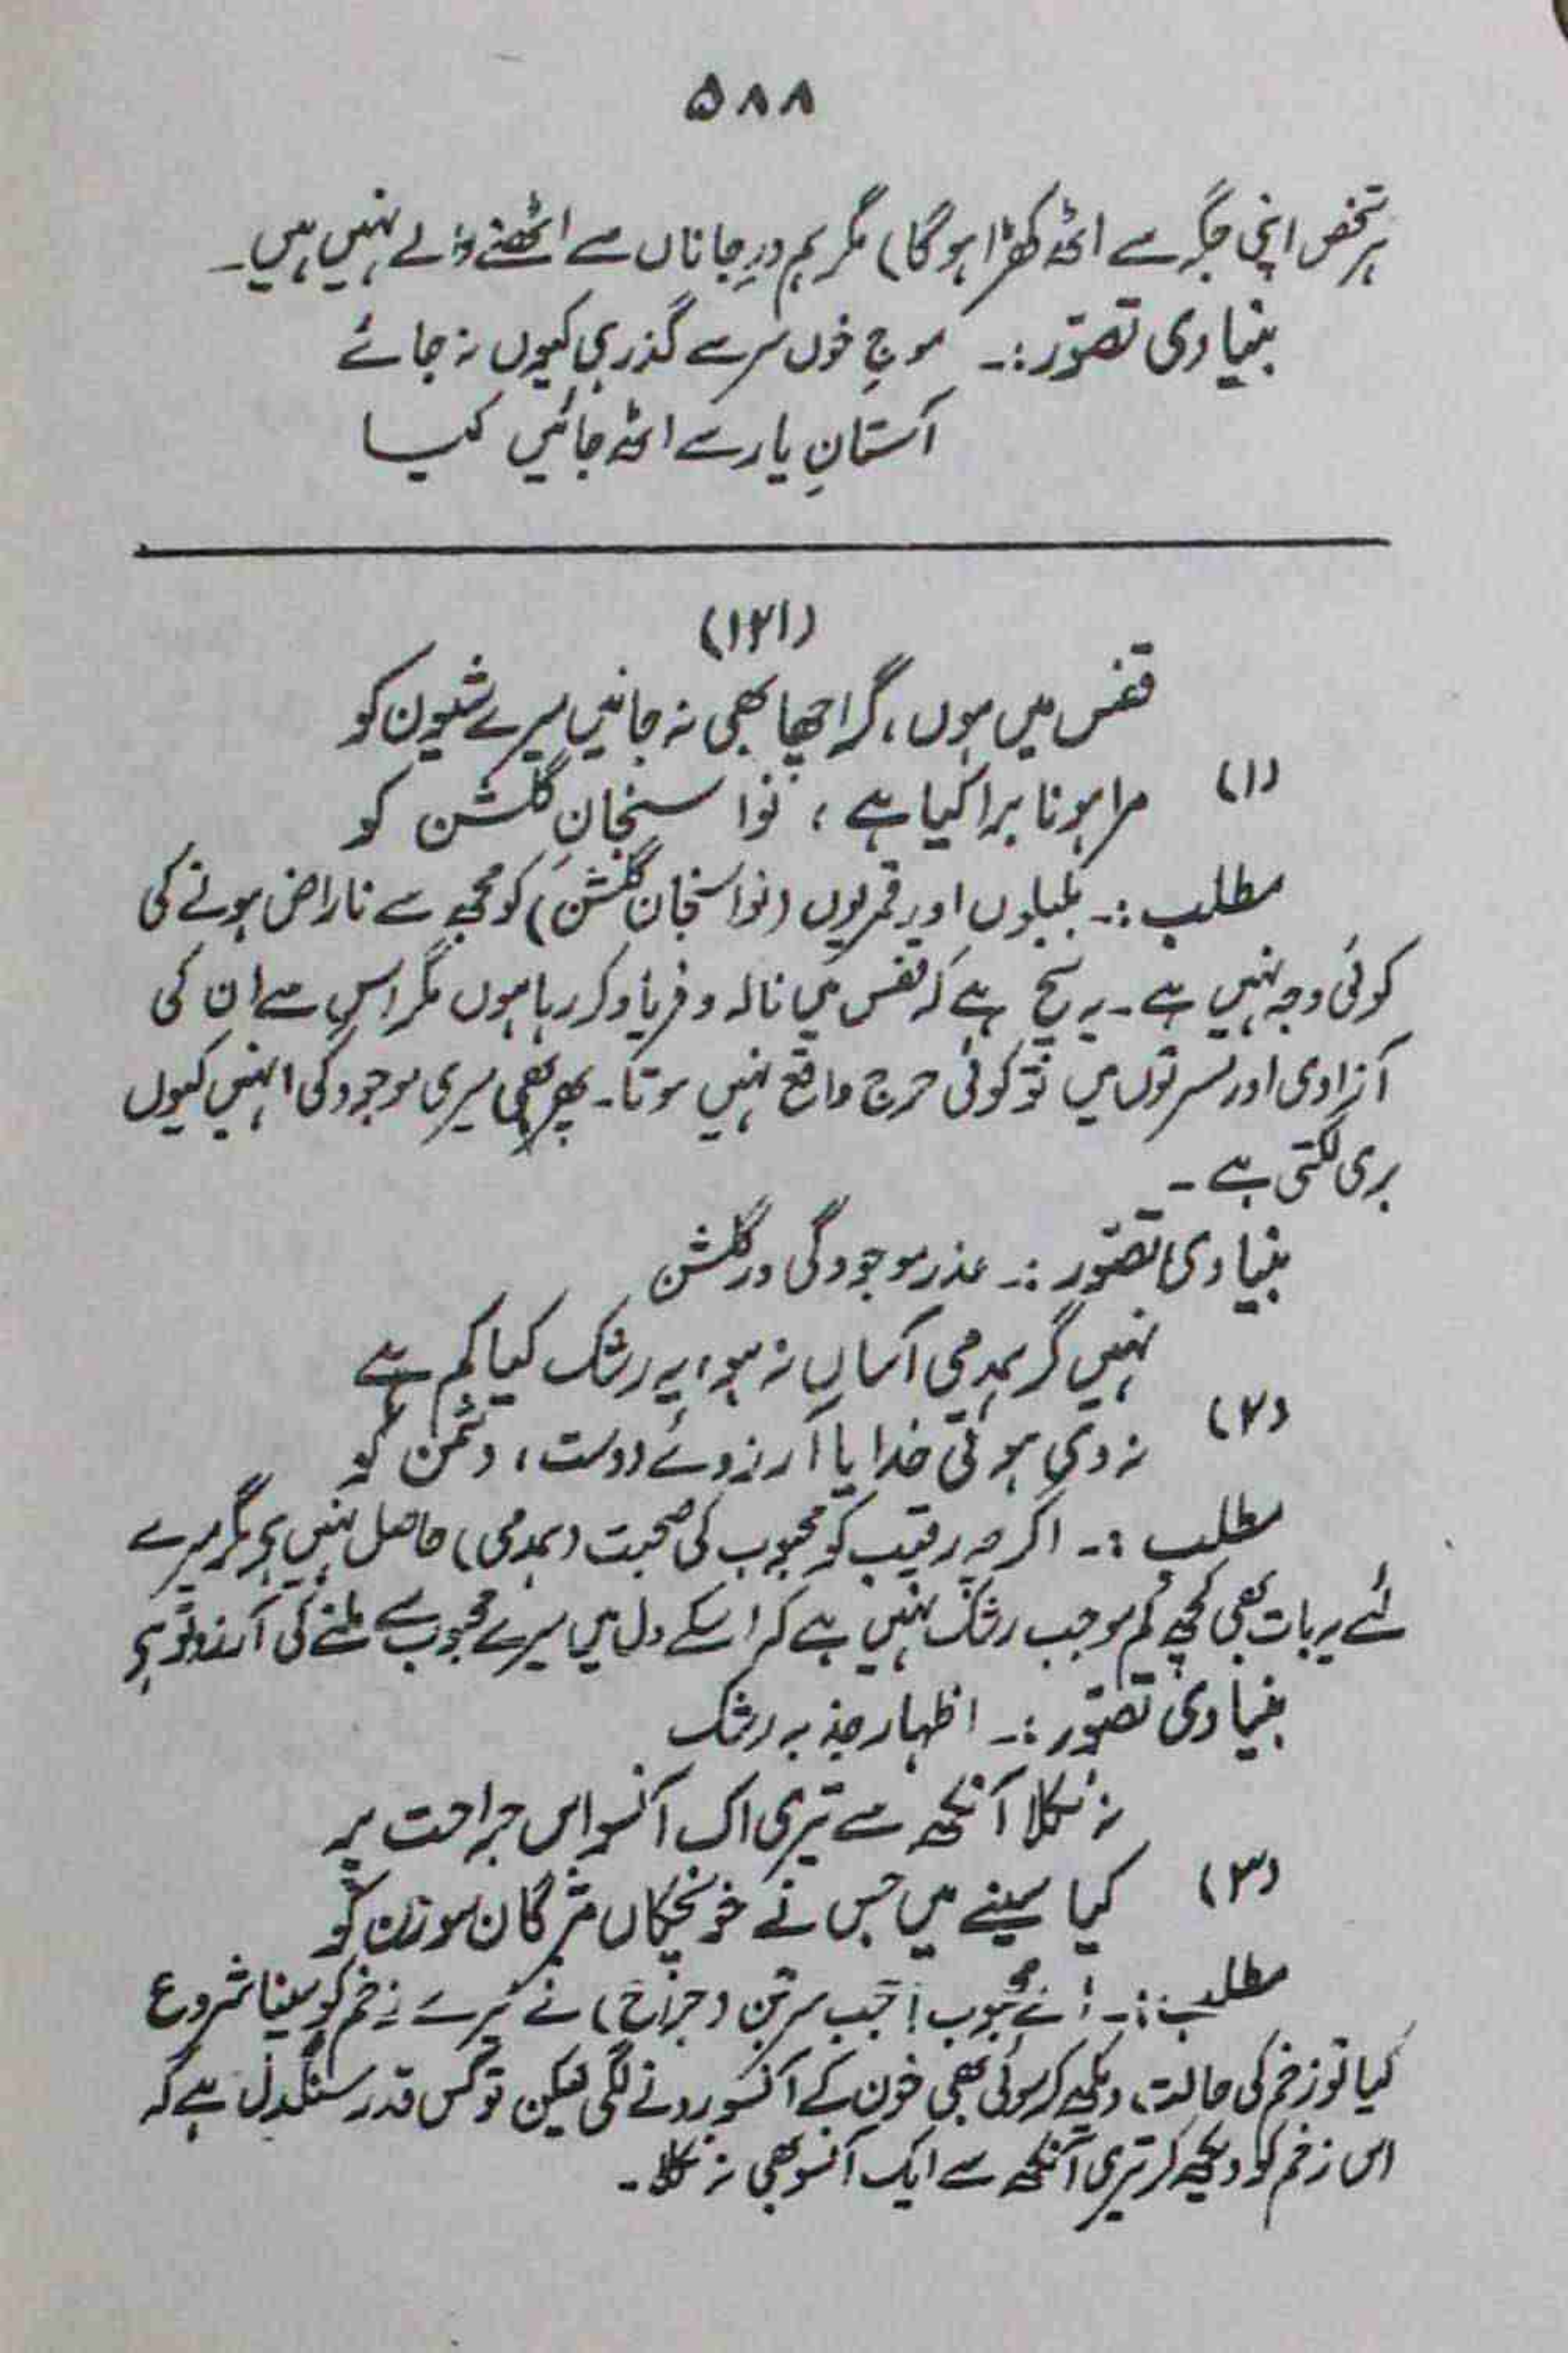 ۵۸۸
ہر شخص اپنی جگہ سے اٹھ کھڑا ہوگا) مگر ہم درِ جاناں سے اٹھنے والے نہیں ہیں۔
بنیادی تصوّر :۔ موجِ خوں سر سے گذر ہی کیوں نہ جائے
آستانِ یار سے اٹھ جائیں کیا
(۱۲۱)
قفس میں ہوں، گر اچھا بھی نہ جانیں میرے شیون کو
(۱) مرا ہونا برا کیا ہے ، نوا سنجانِ گلشن کو
مطلب :۔ بلبلوں اور قمریوں (نوا سنجانِ گلشن) کو مجھ سے ناراض ہونے کی
کوئی وجہ نہیں ہے۔ یہ سچ ہے کہ قفس میں نالہ و فریاد کر رہا ہوں مگر اس سے ان کی
آزادی اور مسرتوں میں تو کوئی حرج واقع نہیں ہوتا۔ پھر بھی میری موجودگی انہیں کیوں
بری لگتی ہے ۔
بنیادی تصوّر :۔ عذر موجودگی در گلشن
نہیں گر ہمدمی آساں نہ ہو، یہ رشک کیا کم ہے
(۲) نہ دی ہوتی خدایا آرزوئے دوست ، دشمن کو
مطلب :۔ اگرچہ رقیب کو محبوب کی صحبت (ہمدمی) حاصل نہیں ہے مگر میرے
لئے یہ بات بھی کچھ کم موجب رشک نہیں ہے کہ اسکے دل میں میرے محبوب سے ملنے کی آرزو تو ہے
بنیادی تصوّر :۔ اظہار جذبہ رشک
نہ نکلا آنکھ سے تیری اک آنسو اس جراحت پر
(۳) کیا سینے میں جس نے خونچکاں مژگان سوزن کو
مطلب :۔ اے محبوب ! جب سرجن (جراح) نے میرے زخم کو سینا شروع
کیا تو زخم کی حالت دیکھ کر سوئی بھی خون کے آنسو رونے لگی لیکن تو کس قدر سنگدل ہے کہ
اس زخم کو دیکھ کر تیری آنکھ سے ایک آنسو بھی نہ نکلا ۔